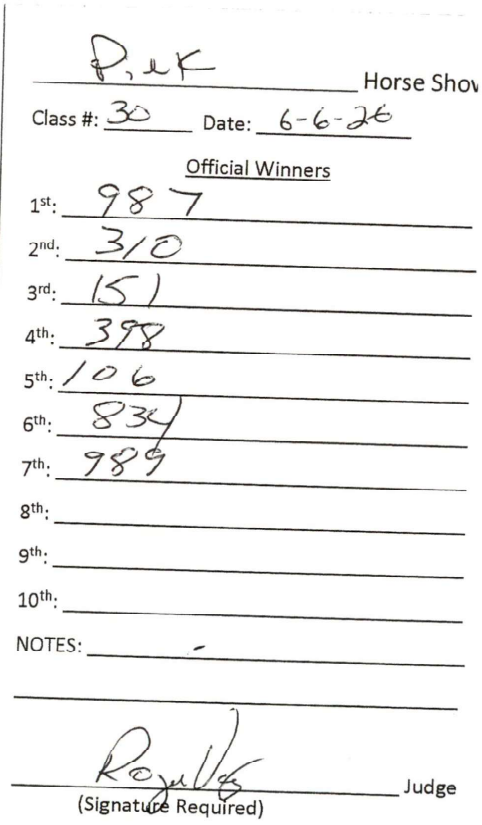 Pink Horse Show
Class #: 30 Date: 6-6-26
Official Winners
1st: 987
2nd: 310
3rd: 151
4th: 398
5th: 106
6th: 834
7th: 989
8th:
9th:
10th:
NOTES:
Judge
(Signature Required)